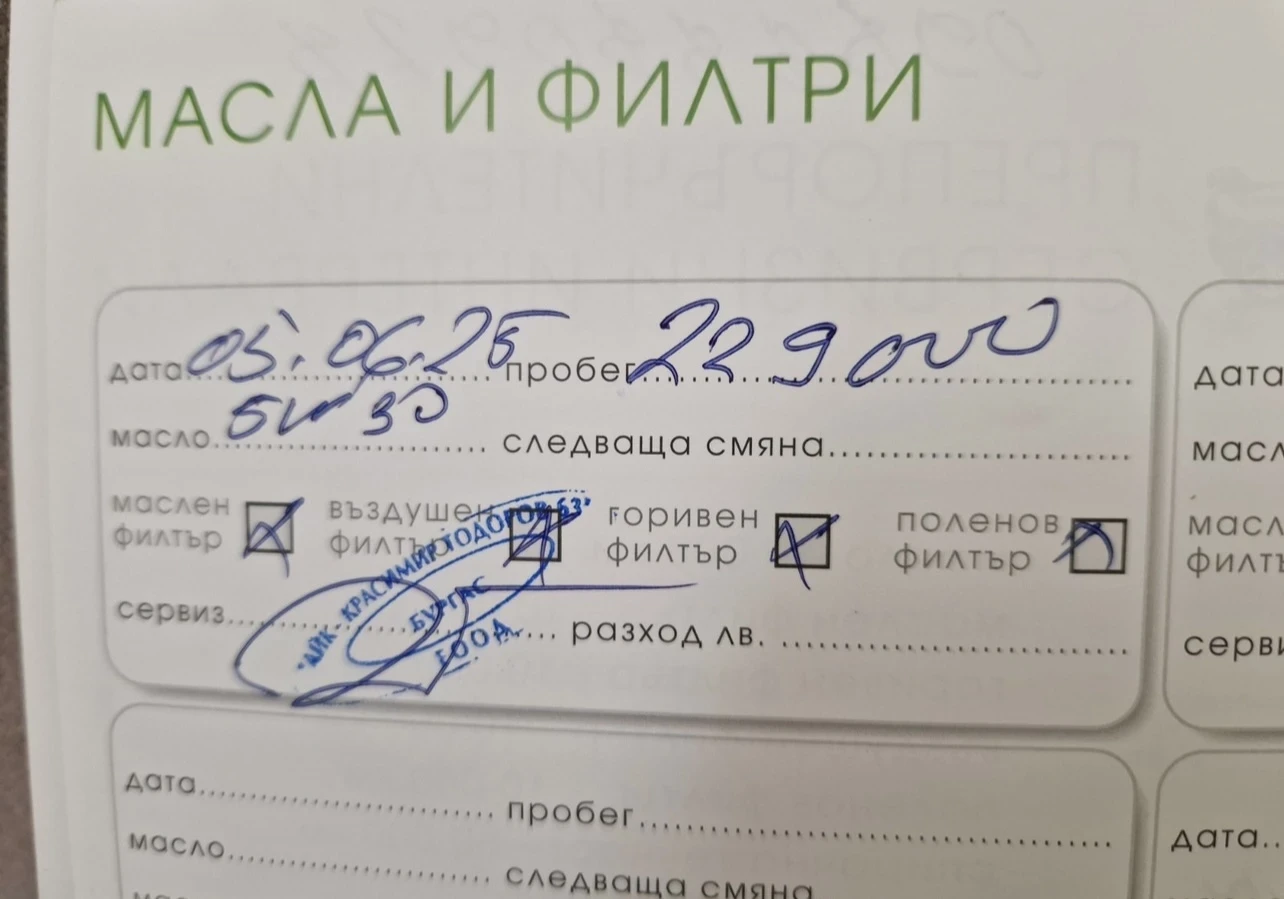 МАСЛА И ФИЛТРИ
дата 05.06.25 пробег 229000
масло 5w30 следваща смяна
маслен филтър въздушен филтър горивен филтър поленов филтър
сервиз разход лв.
"АЙК - КРАСИМИР ТОДОРОВ 63"
БУРГАС
ЕООД
дата пробег
масло следваща смяна
дата
масл
масл
филтъ
серви
дата